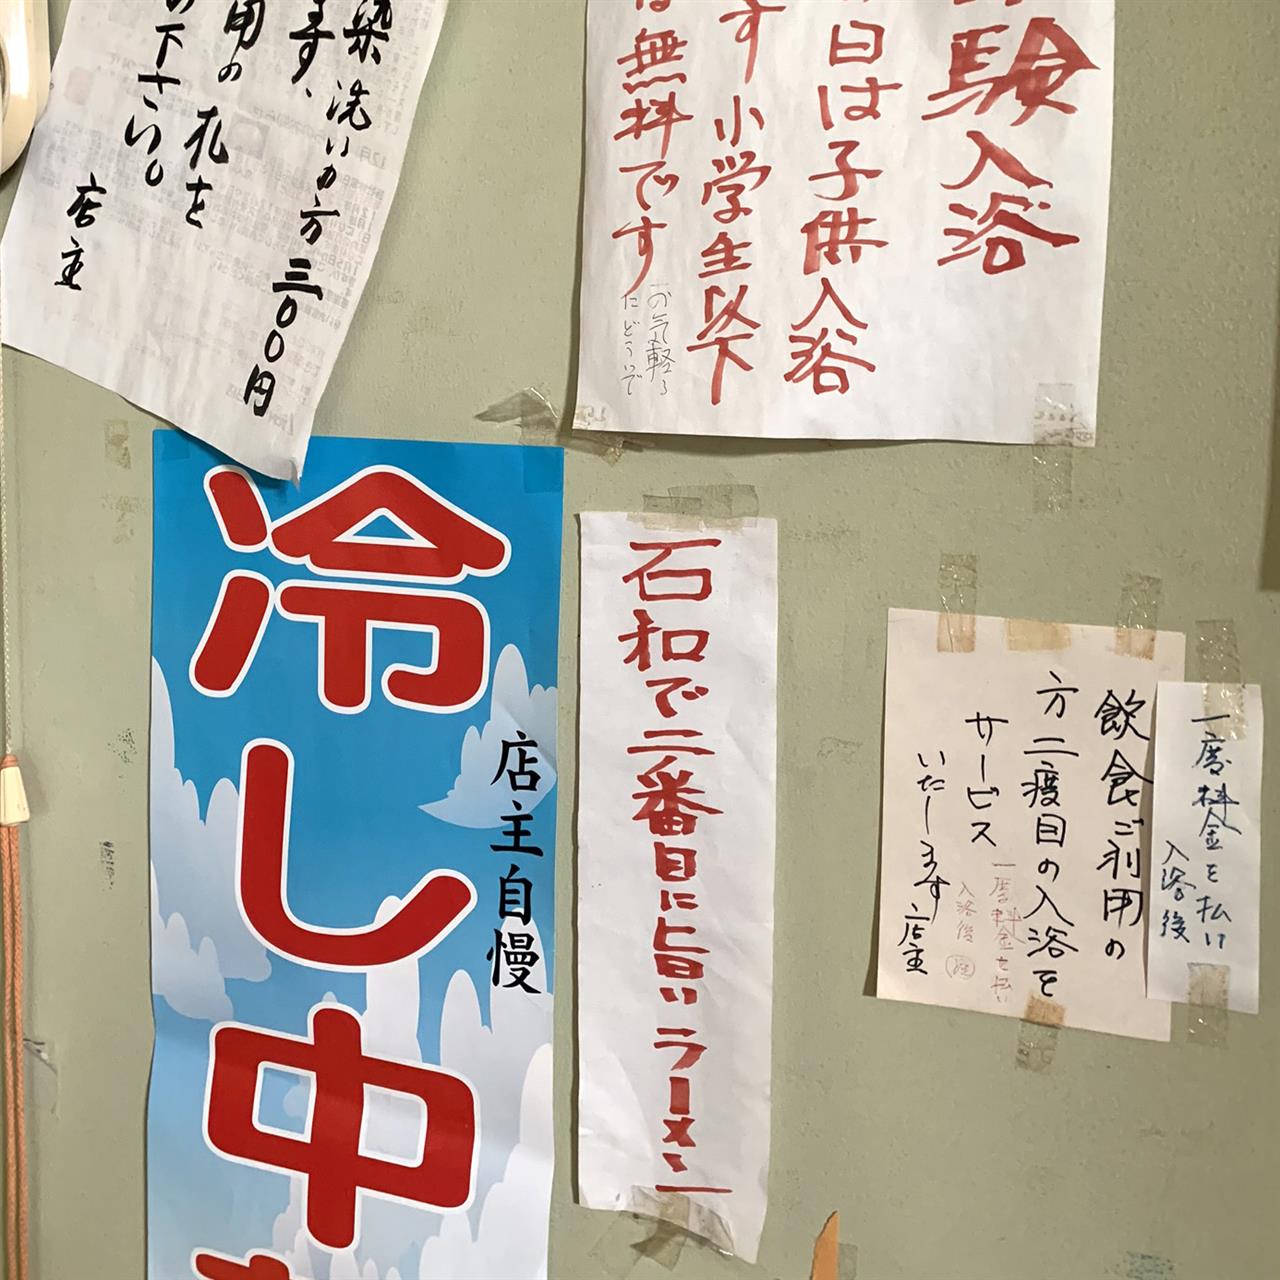 染洗いの方三〇〇円
ます、
用の札を
下さい。
店主
験入浴
日は子供入浴
す 小学生以下
は無料です
お気軽る
にどういで
冷し中
店主自慢
石和で二番目に旨いラーメン
一度料金を払い
入浴後
飲食ご利用の
方二度目の入浴を
サービス
いたします 店主
一度料金を払い
入浴後